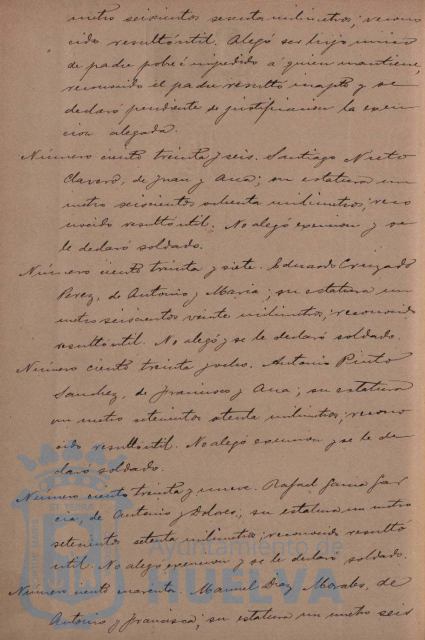 metro seiscientos sesenta milímetros; recono
cido resultó útil. Alegó ser hijo único
de padre pobre é impedido á quien mantiene,
reconocido el padre resultó inapto y se
declaró pendiente de justificación la exen
cion alegada.
Número ciento treinta y seis. Santiago Nieto
Clavero, de Juan y Ana; su estatura un
metro seiscientos ochenta milímetros, reco
nocido resultó útil. No alegó exencion y se
le declaró soldado.
Número ciento treinta y siete. Eduardo Cruzado
Perez, de Antonio y Maria; su estatura un
metro seiscientos veinte milímetros, reconocido
resultó útil. No alegó y se le declaró soldado.
Número ciento treinta y ocho. Antonio Pinto
Sanchez, de Francisco y Ana; su estatura
un metro setecientos milímetros; recono
cido resultó útil. No alegó exencion y se le de
claró soldado.
Número ciento treinta y nueve. Rafael Gar
cia, de Antonio y Dolores; su estatura un metro
setecientos setenta milímetros; reconocido resultó
útil. No alegó exencion y se le declaró soldado.
Número ciento cuarenta. Manuel Diaz Morales, de
Antonio y Francisca; su estatura un metro seis
Ayuntamiento de
HUELVA